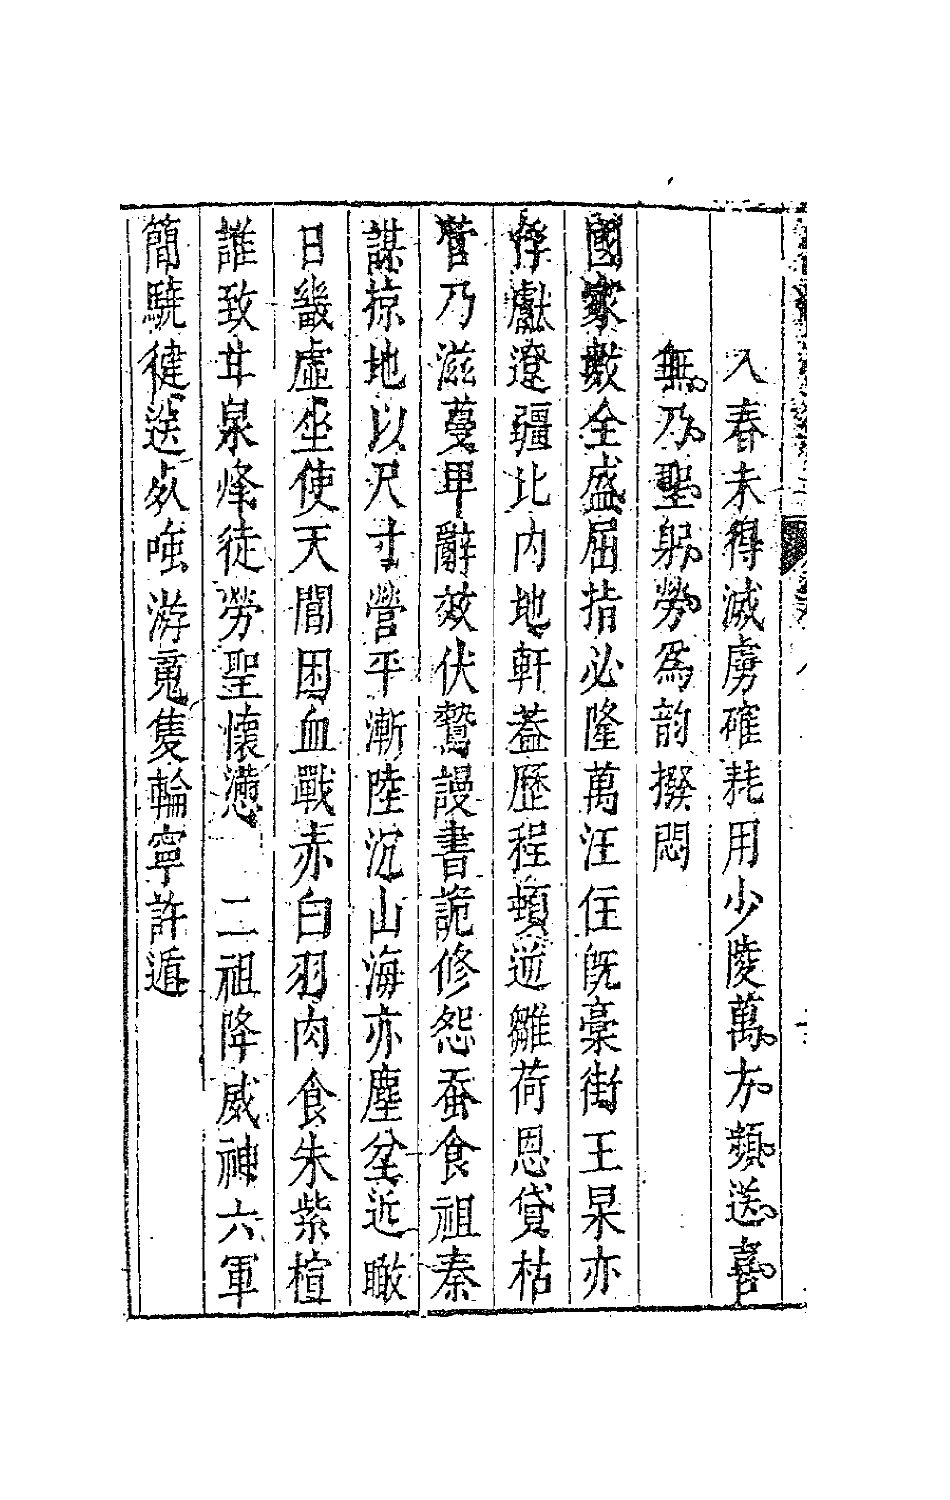 入春未得滅虜確耗用少陵萬方頻送喜
無乃聖躬勞為韵撥悶
國家數全盛屈指必隆萬汪住旣藁街王杲亦
俘獻遼疆比内地軒蓋歷程頓逆雛荷恩貸枯
菅乃滋蔓甲辭效伏鷙謾書詭修怨蚕食祖秦
謀掠地以尺寸營平漸陸沉山海亦塵坌近瞰
日畿虛坐使天閽困血戰赤白羽肉食朱紫楦
誰致甘泉烽徒勞聖懷懣　二祖降威神六軍
簡驍健送欻嗤游䰟隻輪寧許遁